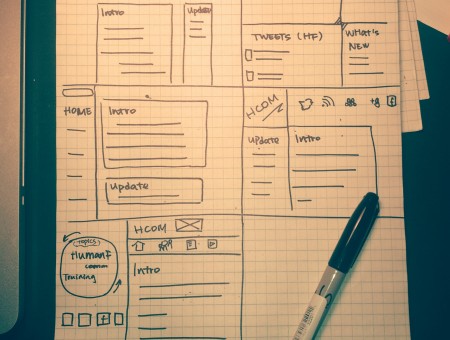 Intro
Update
TWEETS (HF)
WHAT'S
NEW
HOME
Intro
Update
HCOM
Update
Intro
HCOM
(TOPICS)
HumanF
Training
Intro